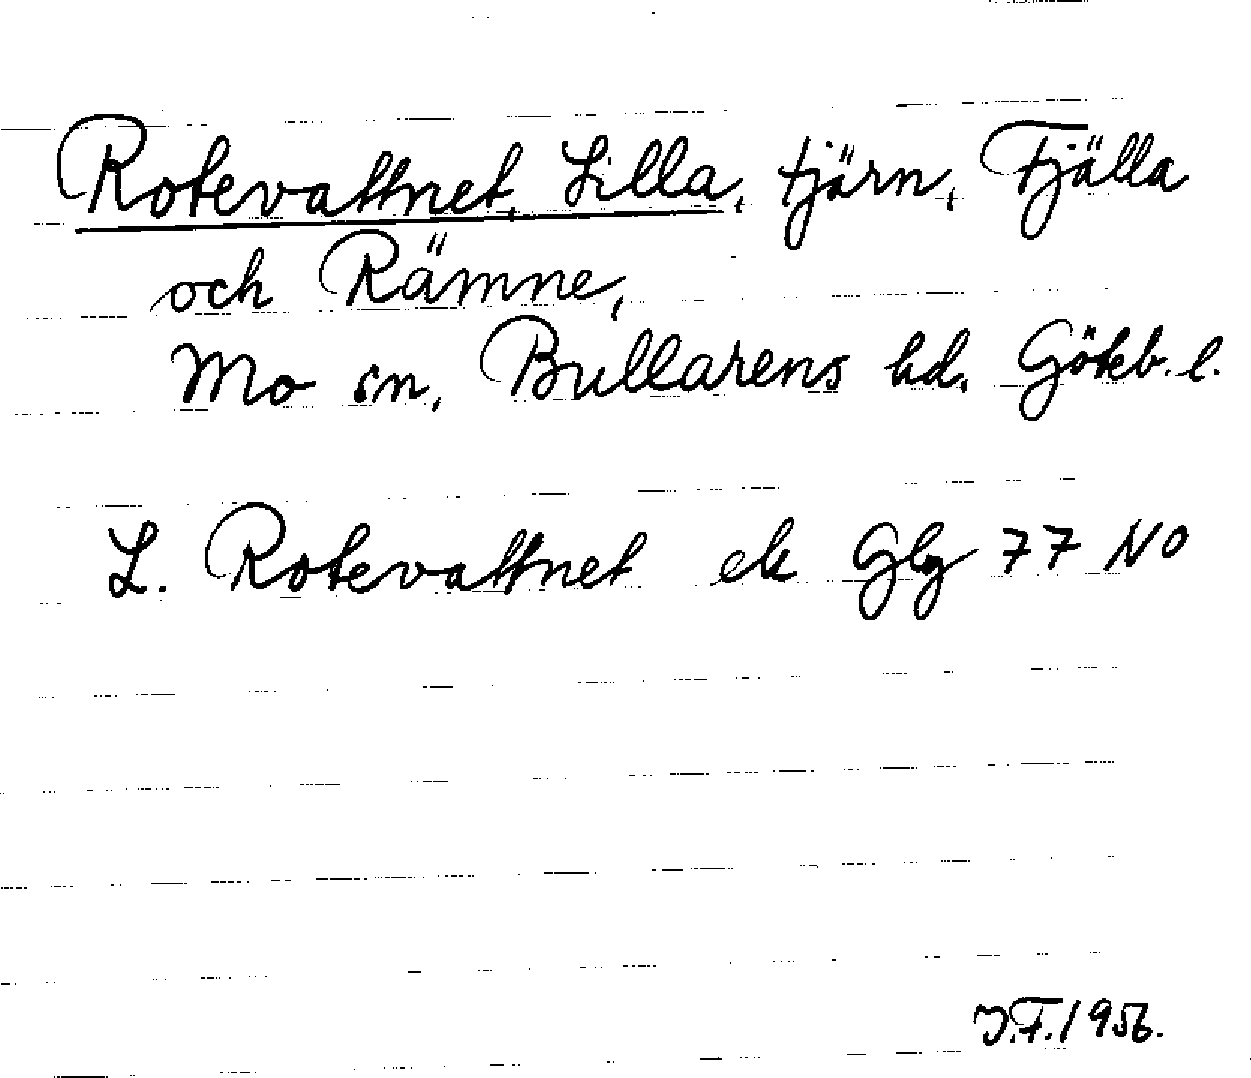 Rotevattnet, Lilla, tjärn, Fjälla
och Rämne,
Mo sn, Bullarens hd. Göteb. l.
L. Rotevattnet ek Gbg 77 NO
J.F. 1956.